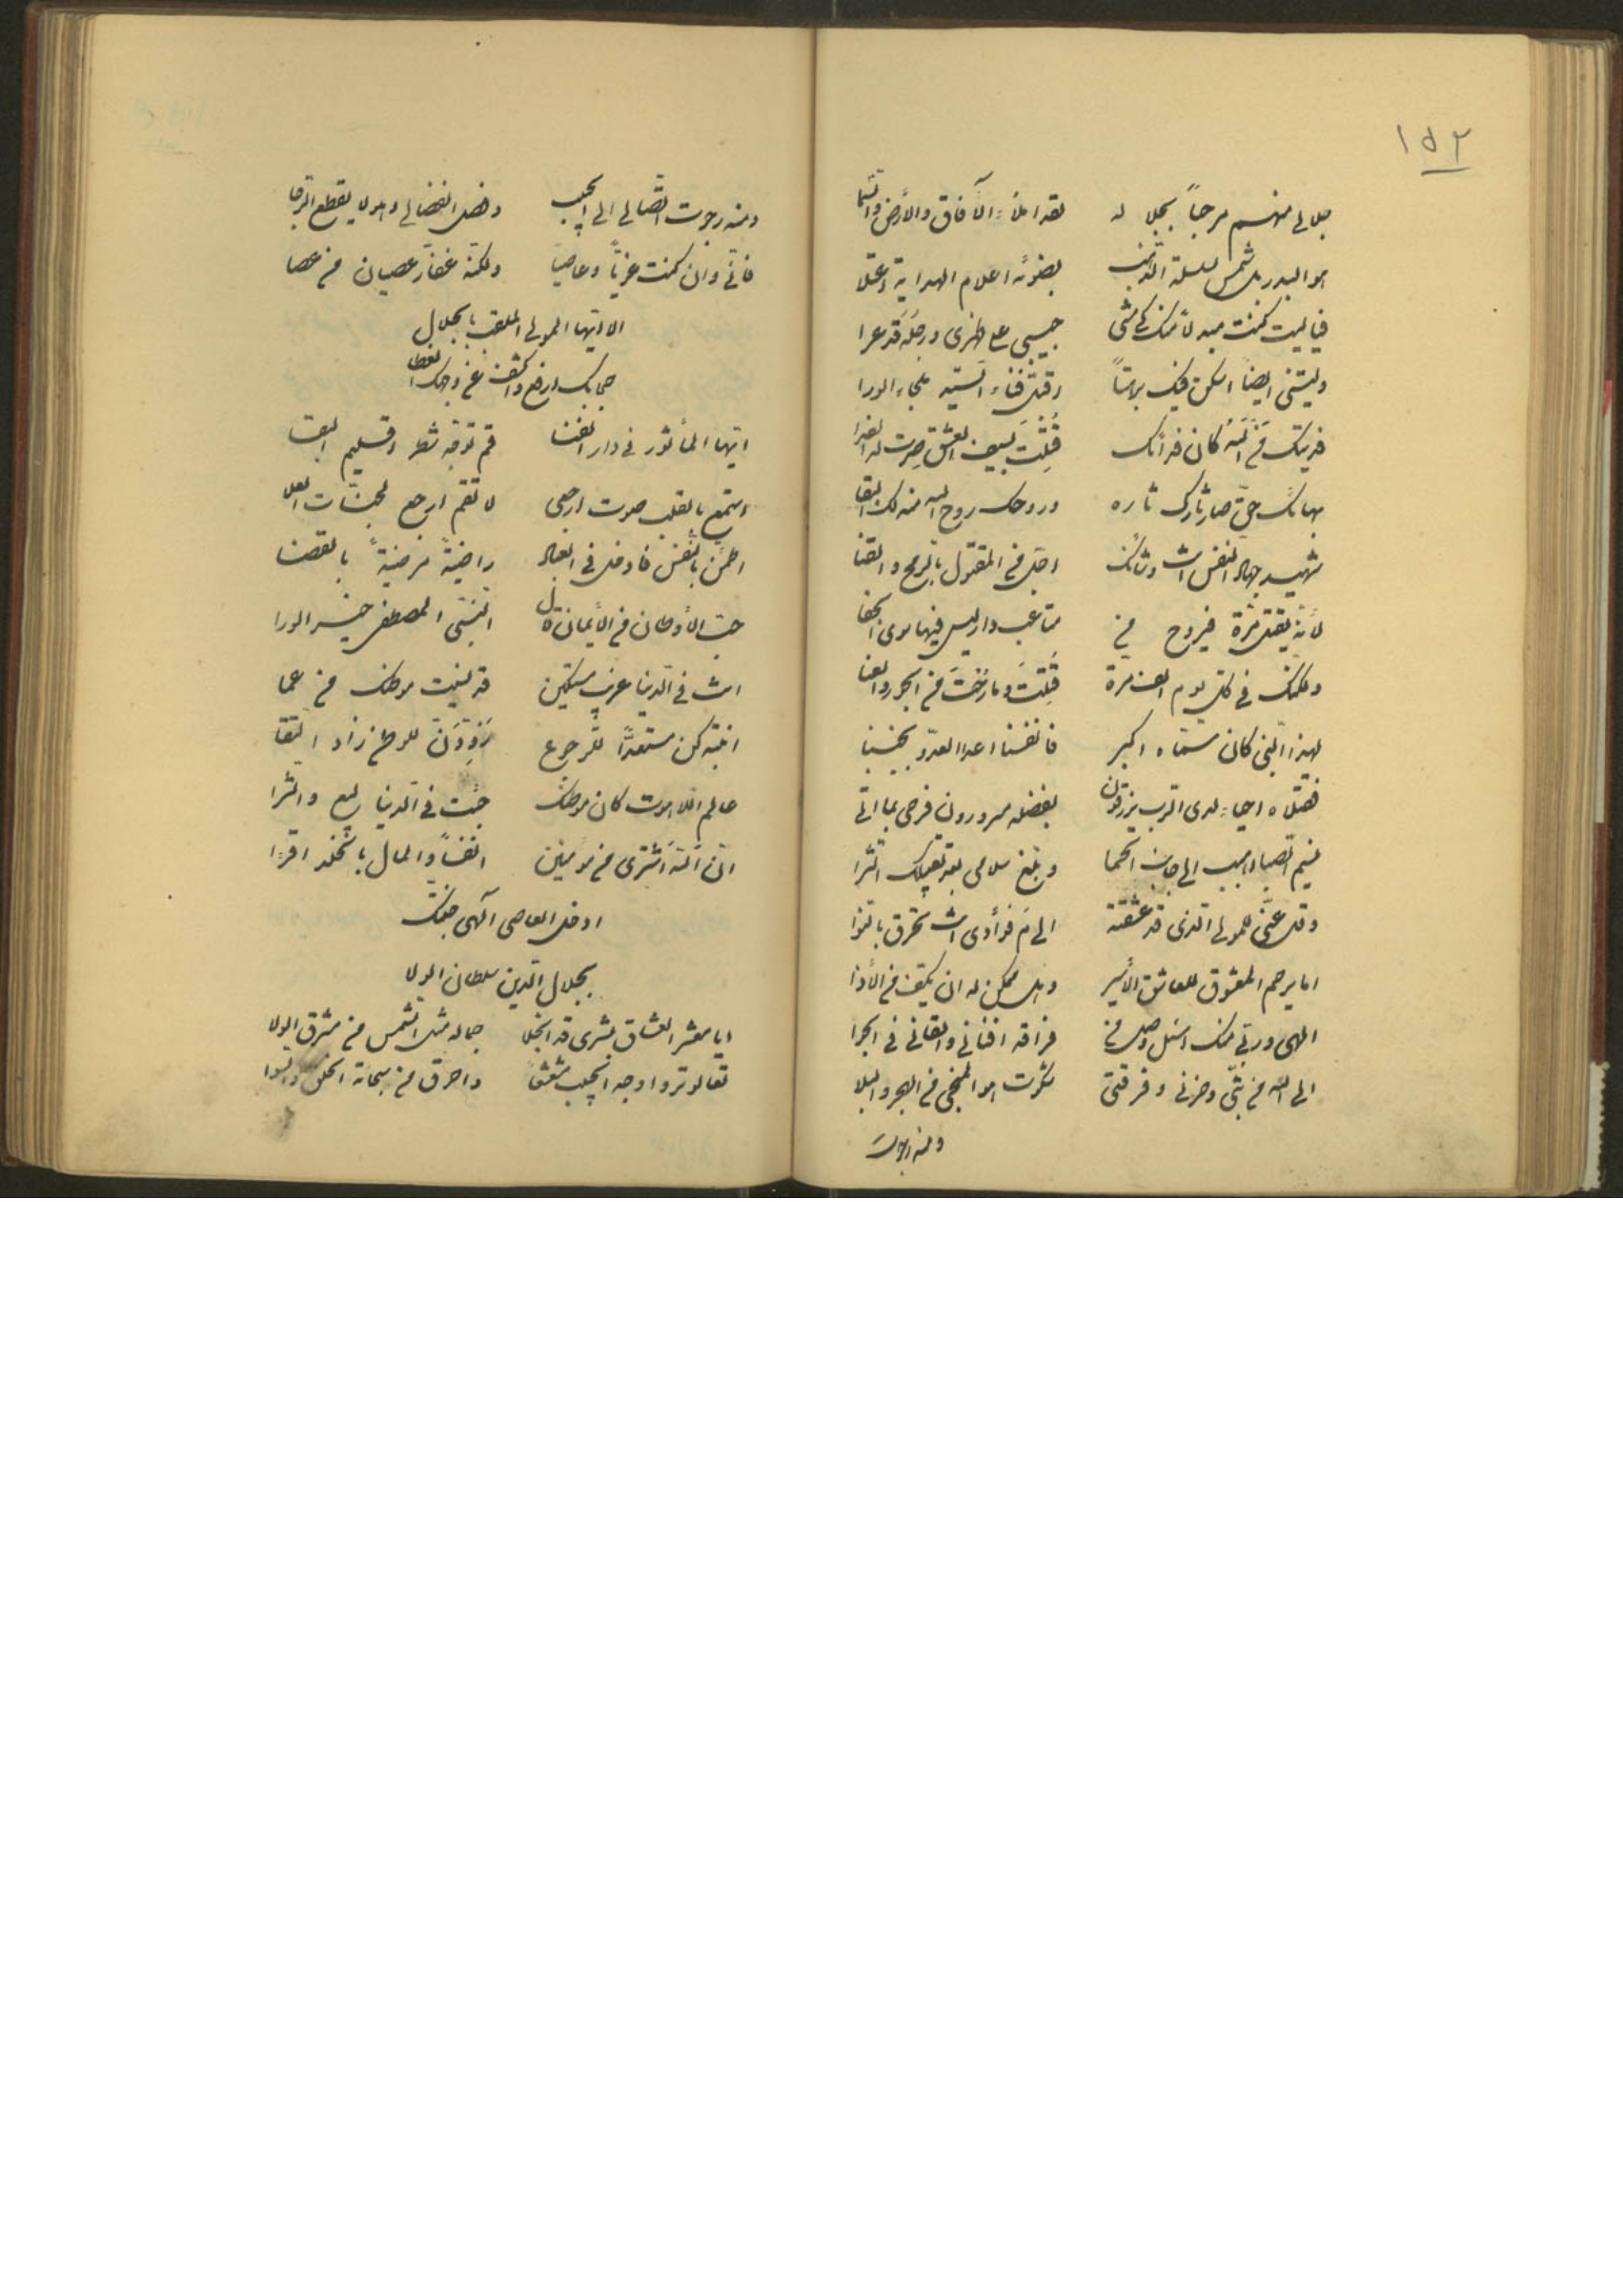 ١٥٢
جلالي منهم مرحباً بجلاله لقد املأ الآفاق والأرض والسّما
هو البدر بل شمس لسلسلة الذهب بضوئه اعلام الهداية
فيا ليت كنت مبدلاً منك كي مشى حبيبي على ظهري ورجله قد عرا
وليتني ايضاً اسكن فيك برهتاً
فديتك من الله كان فداك قُتلتَ بسيف العشق صرت له
بهائك حتى صار ثارك ثاره وروحك روح الله منه لك البقا
شهيد جهاد النفس انت وشأنك اجلّ من المقتول بالرمح والقنا
لأنّه يقتل مرّة فيروح من متاعب دار ليس فيها سوى الجفا
ولكنك في كل يوم الف مرة قُتلتَ وما رُحتَ من الجور والعنا
لهذا النبي كان سمّاه اكبر فانفسنا اعدا العدو بجنبنا
فقتلاه احياء لدى الرب يرزقون بفضله مسرورون فرحى بما اتى
نسيم الصبا اهبب الى جانب الحما وبلّغ سلامي بعد تقبيلك الثرا
وقل عنّي للمولى الذي قد عشقته الى مَ فؤادي انت تحرق بالنوا
اما يرحم المعشوق للعاشق الأسير وهل ممكن له ان يكفّ من الأذا
الهي وربي منك اسئل وصل من فراقه افناني والقاني في الجرا
الى الله من بثّي وحزني وفرقتي شكرت هو المنجي من الهجر والبلا
ومنه رجوت
ومنه رجوت اتّصالي الى الحبيب وفصل انفصالي وهو لا يقطع الرّجا
فانّي وان كنت غويّاً وعاصياً ولكنّه غفّار عصيان من عصا
الا ايّها المولى الملقب بالجلال
حجابك ارفع واكشف عن وجهك الغطا
ايّها المأثور في دار الفنا قم توجّه شطر اقليم البقا
استمع بالقلب صوت ارجعي لا تقم ارجع لجنّات العلا
اطمئن بالنفس فادخل في العباد راضيةً مرضيةً بالقضا
حبّ الأوطان من الأيمان قال النبيّ المصطفى خير الورا
انت في الدنيا غريب مستكين قد نسيت موطنك من عما
انتبه كن مستعدّاً للرجوع زَوّدَن للوطن زاد التقا
عالم اللاهوت كان موطنك جئت في الدنيا لبيع والشرا
انّ اللهَ اشترى من مؤمنين انفساً والمال بالخلد اقرءا
ادخل العاصي آلهي جنتك
بجلال الدين سلطان الولا
ايا معشر العشاق بشرى قد انجلا جماله مثل الشمس من مشرق الولا
تعالوا تروا وجه الحبيب مشعشعا واحرق من سبحاته الخلق والسوا